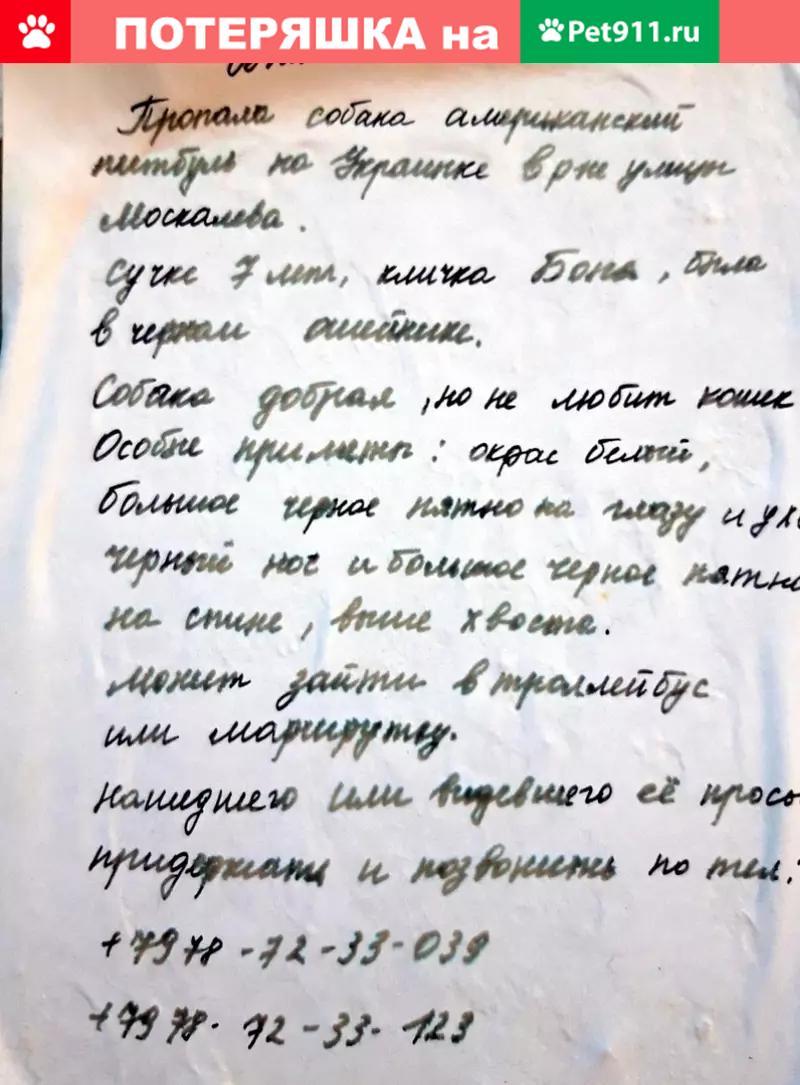 ПОТЕРЯШКА на Pet911.ru
Пропала собака американский
питбуль на Украинке в р не улицы
Москалева.
Сучке 7 лет, кличка Бона, была
в черном ошейнике.
Собака добрая, но не любит кошек
Особые приметы: окрас белый,
большое черное пятно на глазу и ухе
черный нос и большое черное пятно
на спине, выше хвоста.
Может зайти в троллейбус
или маршрутку.
Нашедшего или видевшего её просьб
придержать и позвонить по тел.:
+7978-72-33-039
+7978-72-33-123